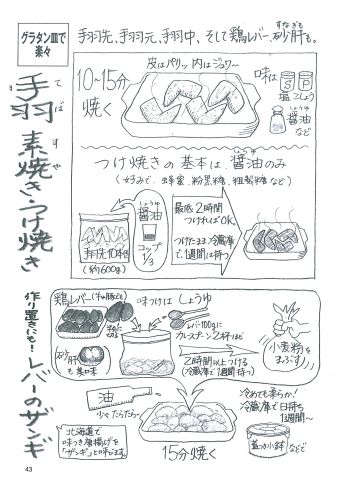 グラタン皿で
楽々
手羽先、手羽元、手羽中、そして鶏レバー、砂肝も。
すなぎも
手羽
てば
素焼き・つけ焼き
すや
皮はパリッ、内はジュワ〜
10〜15分
焼く
味は
S P
塩 こしょう
しょうゆ
醤油
など
つけ焼きの基本は醤油のみ
しょうゆ
(好みで、蜂蜜、粉黒糖、粗製糖など)
しょうゆ
醤油
コップ
1/3
手羽先10本
(約600g)
最低2時間
つければOK。
つけたまま冷蔵庫
で、1週間は持つ
作り置きにも!
レバーのザンギ
鶏レバー
味つけはしょうゆ
レバー100gに
カレースプーン2杯で
砂肝
も美味
2時間以上つける
(冷蔵庫で1週間持つ)
小麦粉を
まぶす
油
少々たらたら〜
北海道で
味つき唐揚げを
「ザンギ」と呼ぶます。
15分焼く
冷めても柔らか!
冷蔵庫で日持ち
1週間〜
蓋つき小鉢
などで
43